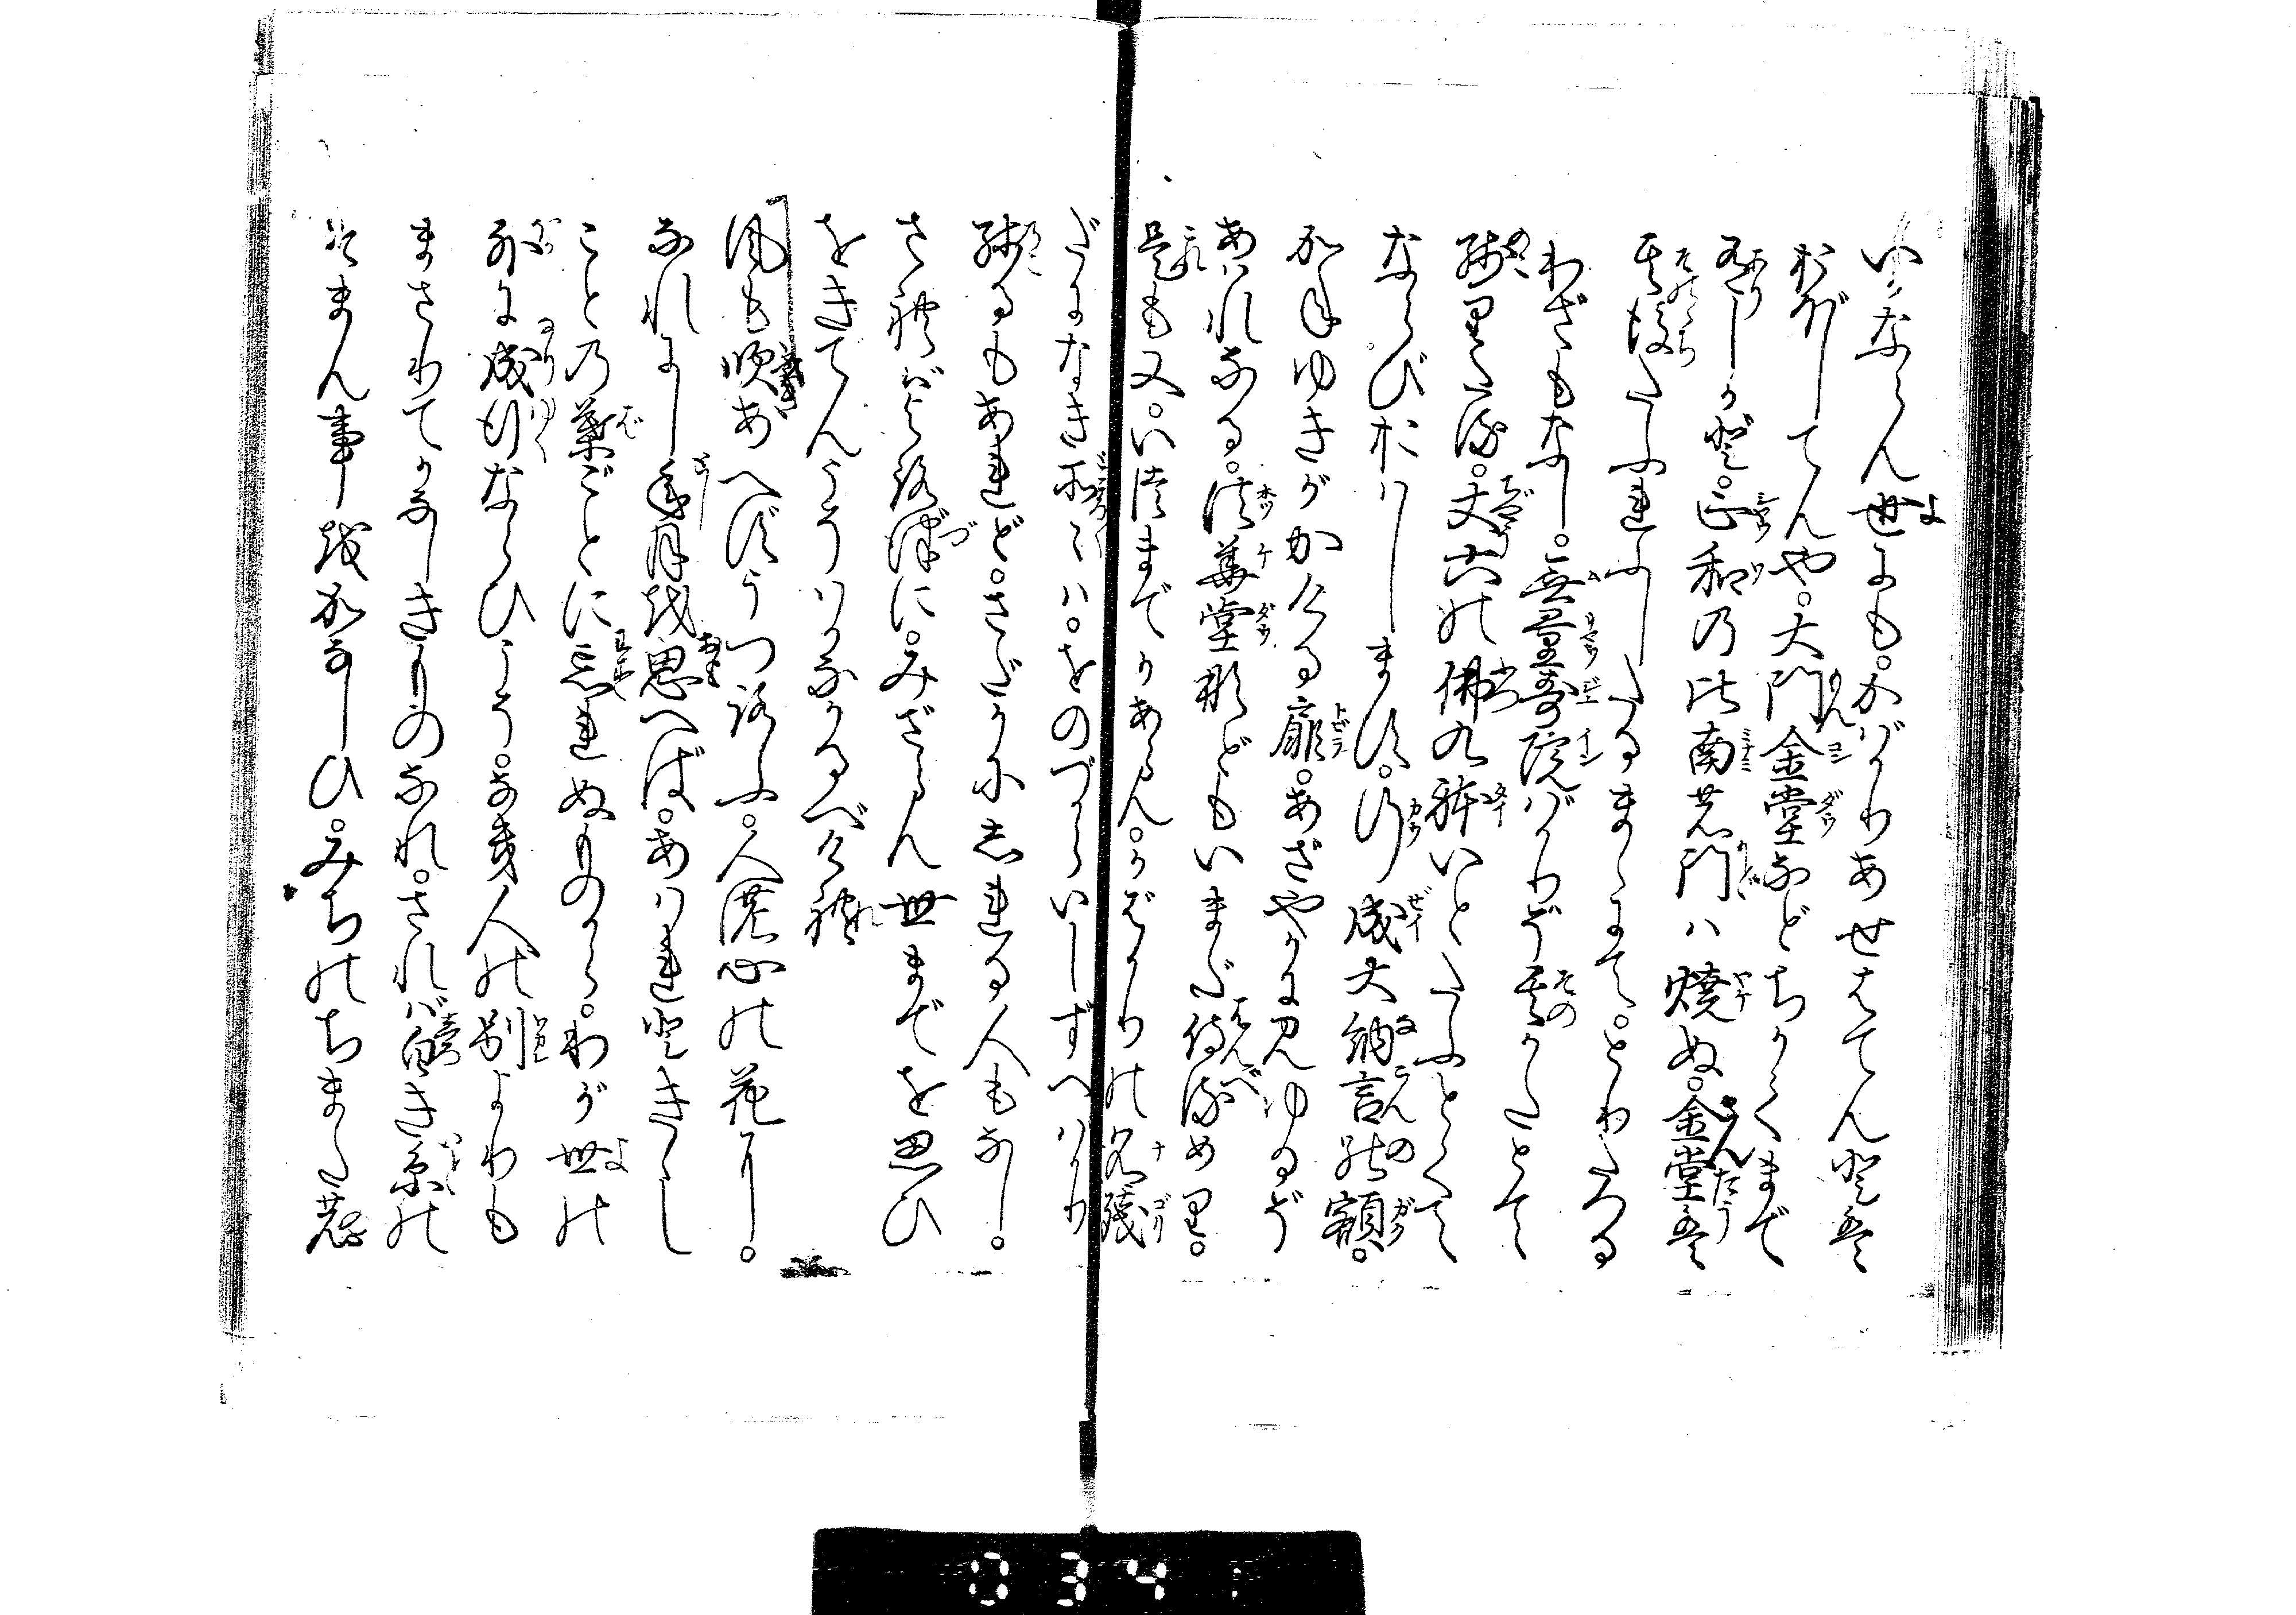 いかならん世にも。かばかりあせはてんとは
おぼしてんや。大門金堂などちかくまで
有しかど。正和の比南の門は焼ぬ。金堂は
其後たふれふしたるまゝにて。とりたつる
わざもなし。無量寿院ばかりぞ其かたとて
残りたる。丈六の佛九躰いとたふとくて
ならびおはします。行成大納言の額。
かねゆきがかける扉。あざやかに見ゆるぞ
あはれなる。法華堂などもいまだ侍るめり。
是も又。いつまでかあらん。かばかりの名残
だになき所々は。をのづからいしずへばかり
残るもあれど。さだかにしれる人もなし。
さればよろづに。みざらん世までを思ひ
をきてんこそはかなかるべけれ
風も吹あへずうつろふ。人の心の花に。
なれにし年月を思へば。あはれときゝし
ことの葉ごとに忘れぬものから。わが世の
外に成行ならひこそ。なき人の別よりも
まさりてかなしきものなれ。されば白き糸の
そまん事をかなしひ。みちのちまたの